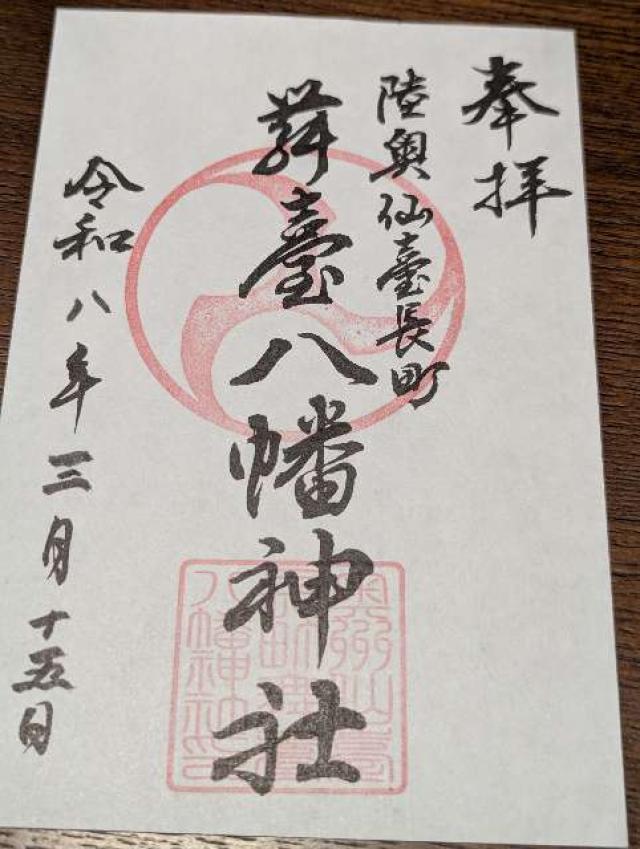 奉拝
陸奥仙臺長町
舞臺八幡神社
令和八年三月十五日